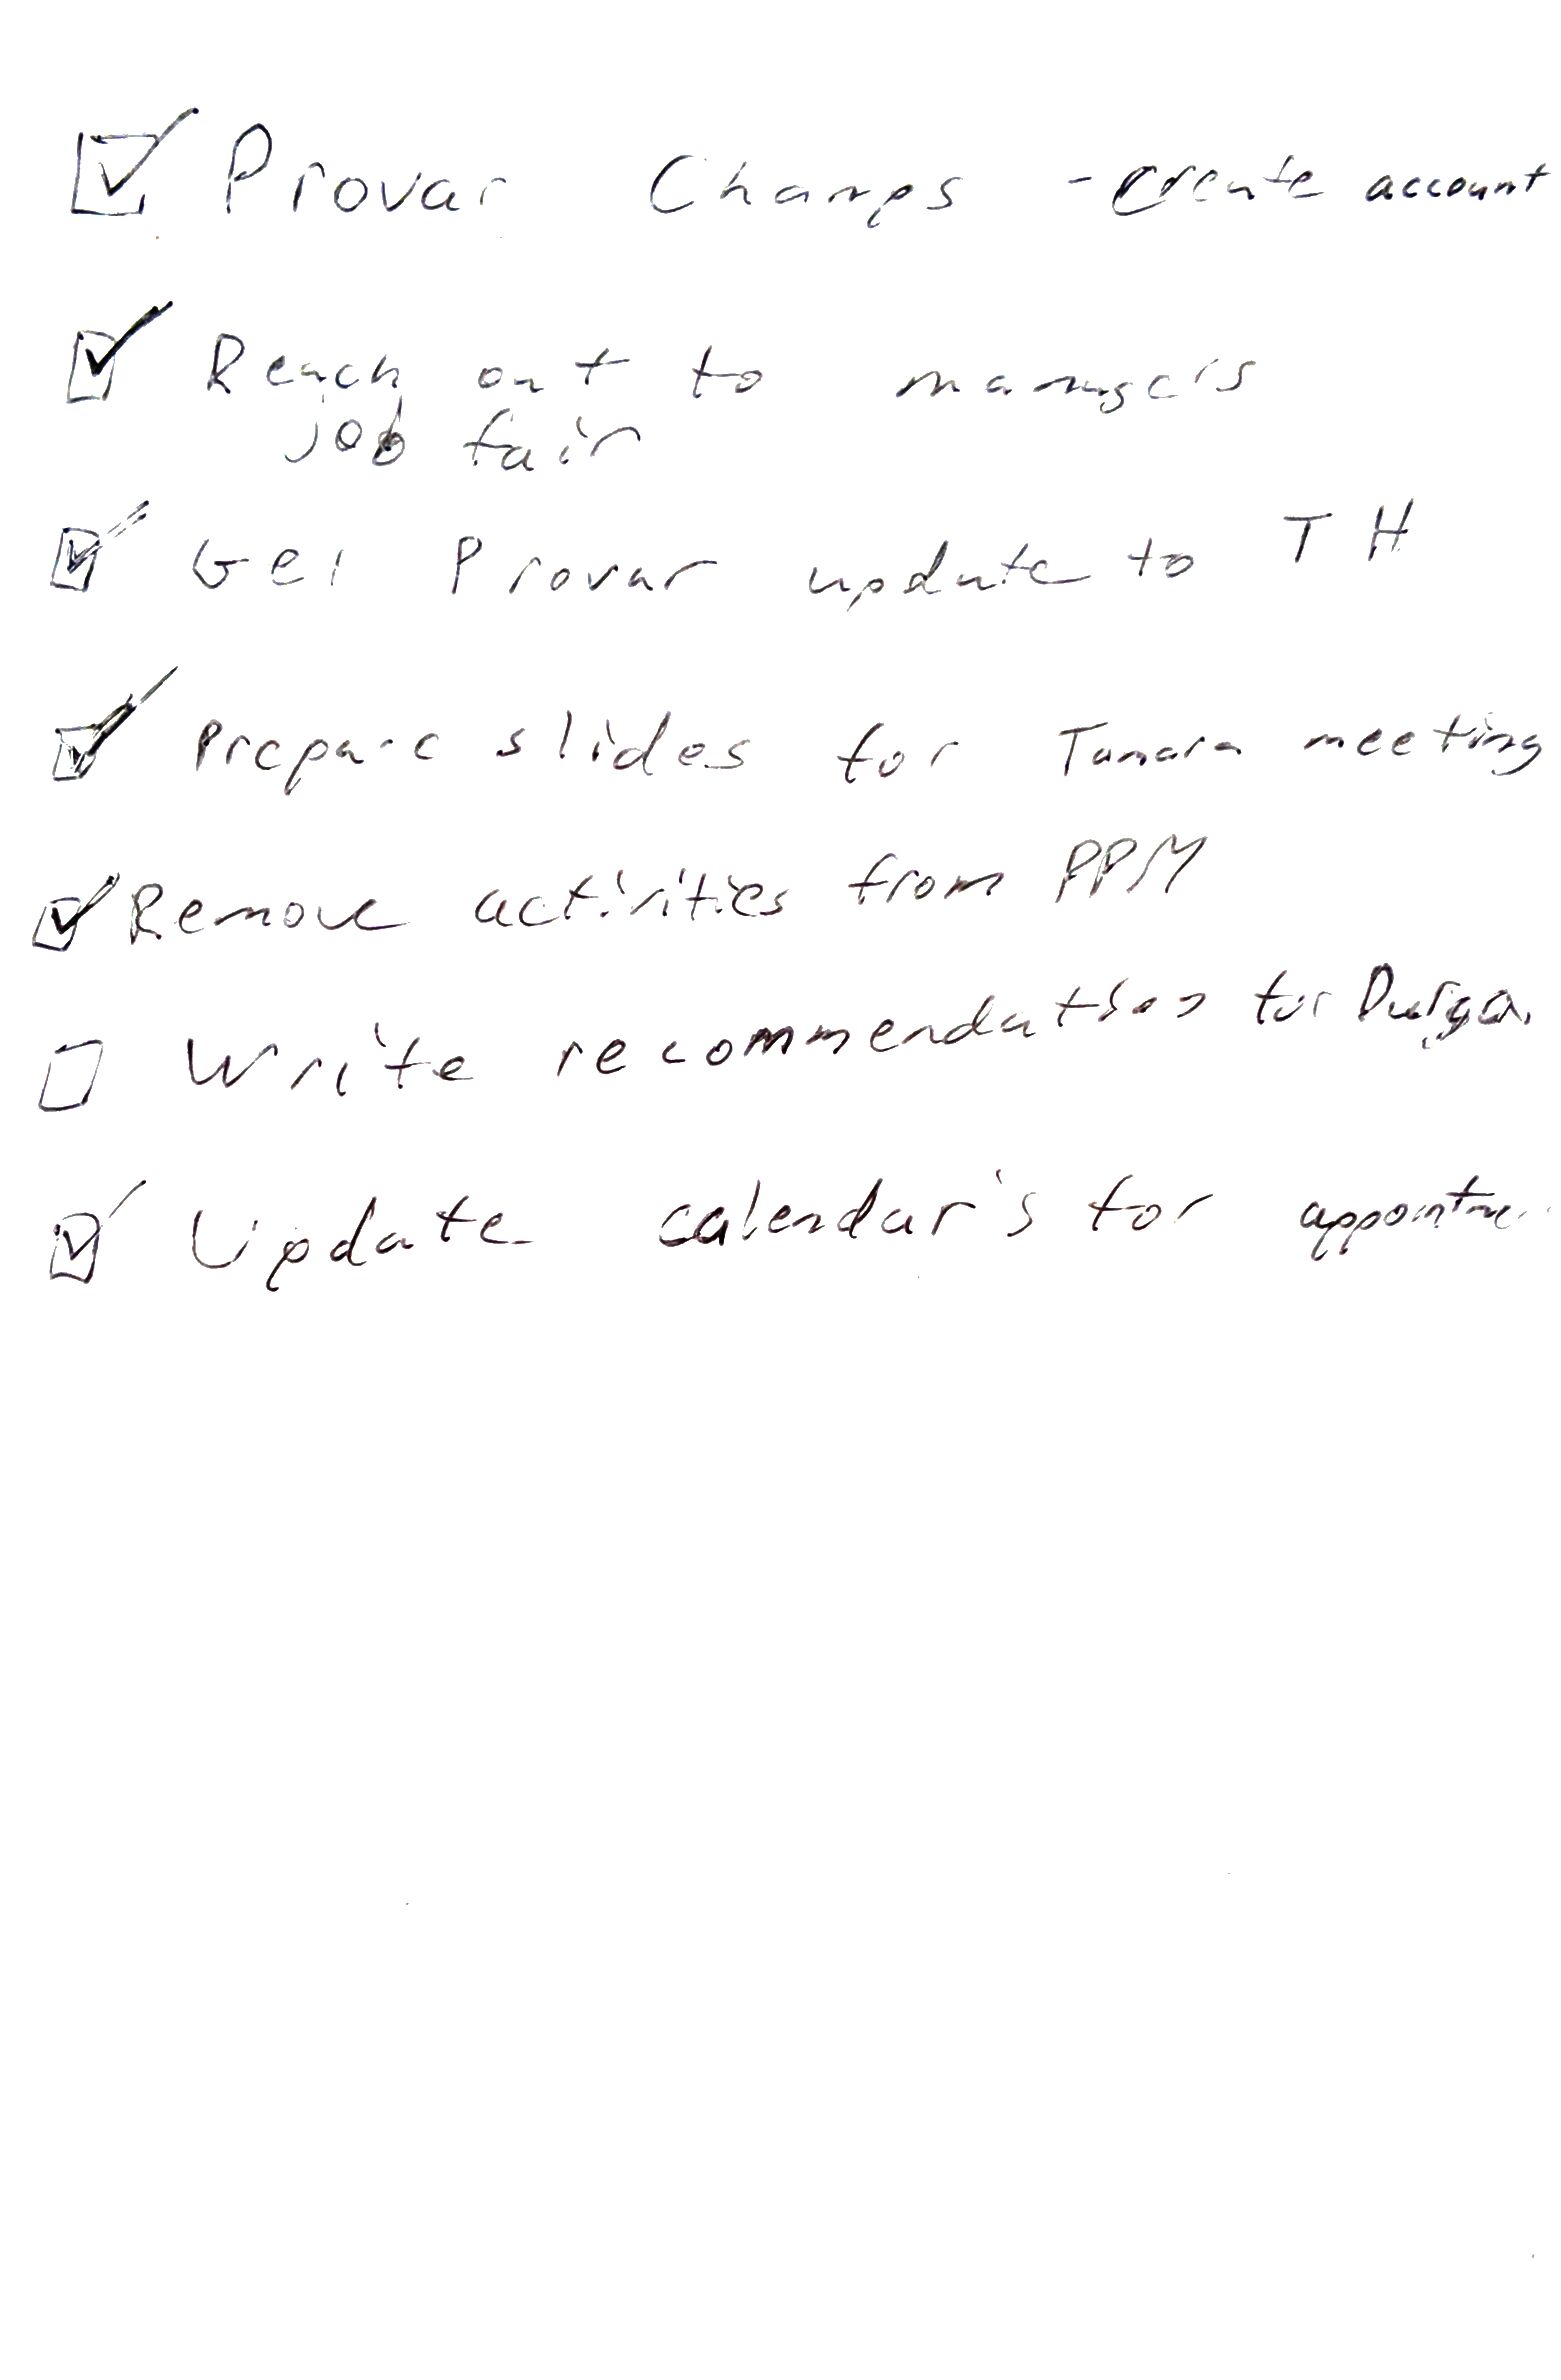 ☑ Provar Champs - Create account
☑ Reach out to managers
job fair
☑ Get Provar update to TH
☑ Prepare slides for Tamara meeting
☑ Remove activities from PPM
☐ Write recommendation for Durga.
☑ Update calendar's for